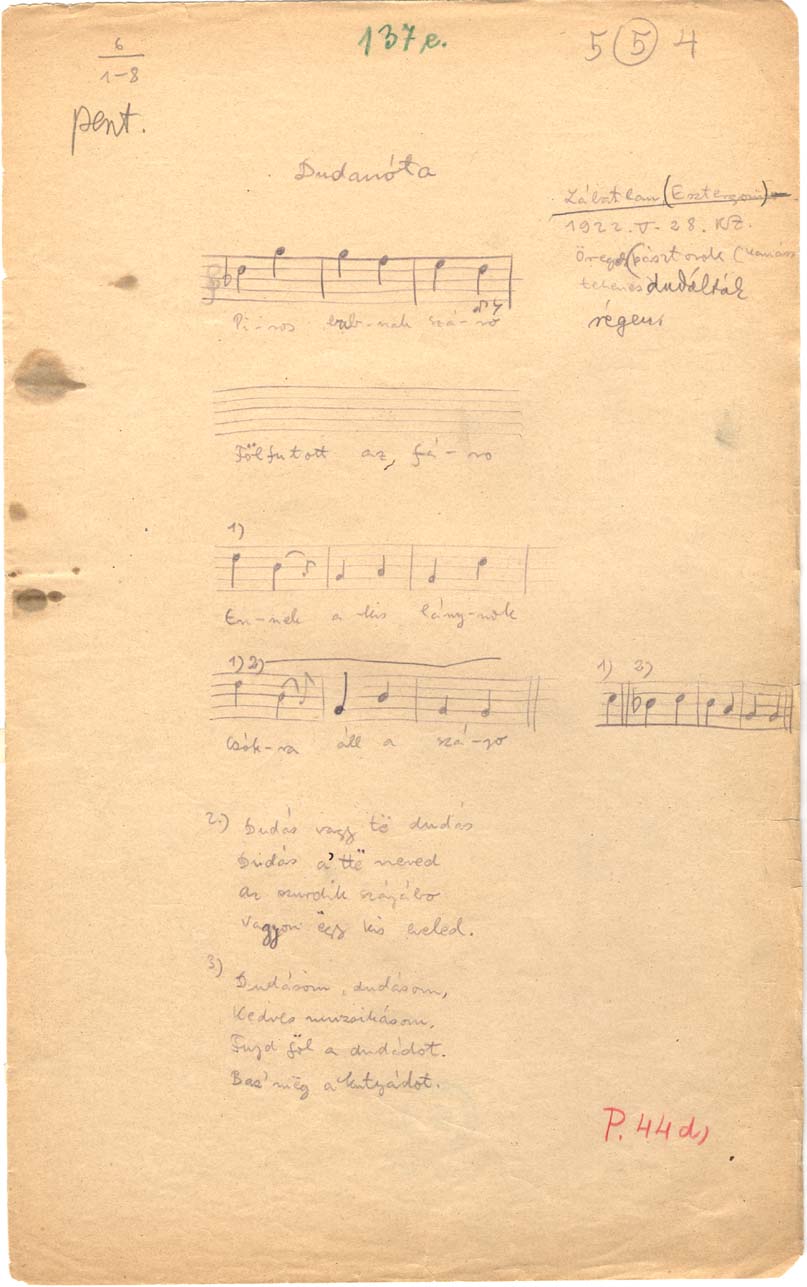 6
1-8
137e.
5 5 4
pent.
Dudanóta
Lábatlan (Esztergom)
1922. V. 28. KZ.
Öreg pásztorok (kanász
tehenes dudálták
régen
Pi-ros bab-nak szá-ro
Fölfutott az fá-ro
1)
En-nek a kis lány-nok
1) 2)
Csók-ra áll a szá-jo
1) 2)
2.) Dudás vagy tö dudás
Dudás a' të neved
az szurdik szájábo
vagyon ëgy kis eveled.
3)
Dudásom, dudásom,
Kedves muzsikásom,
Fujd föl a dudádot.
Basd mëg a kutyádot.
P. 44d)